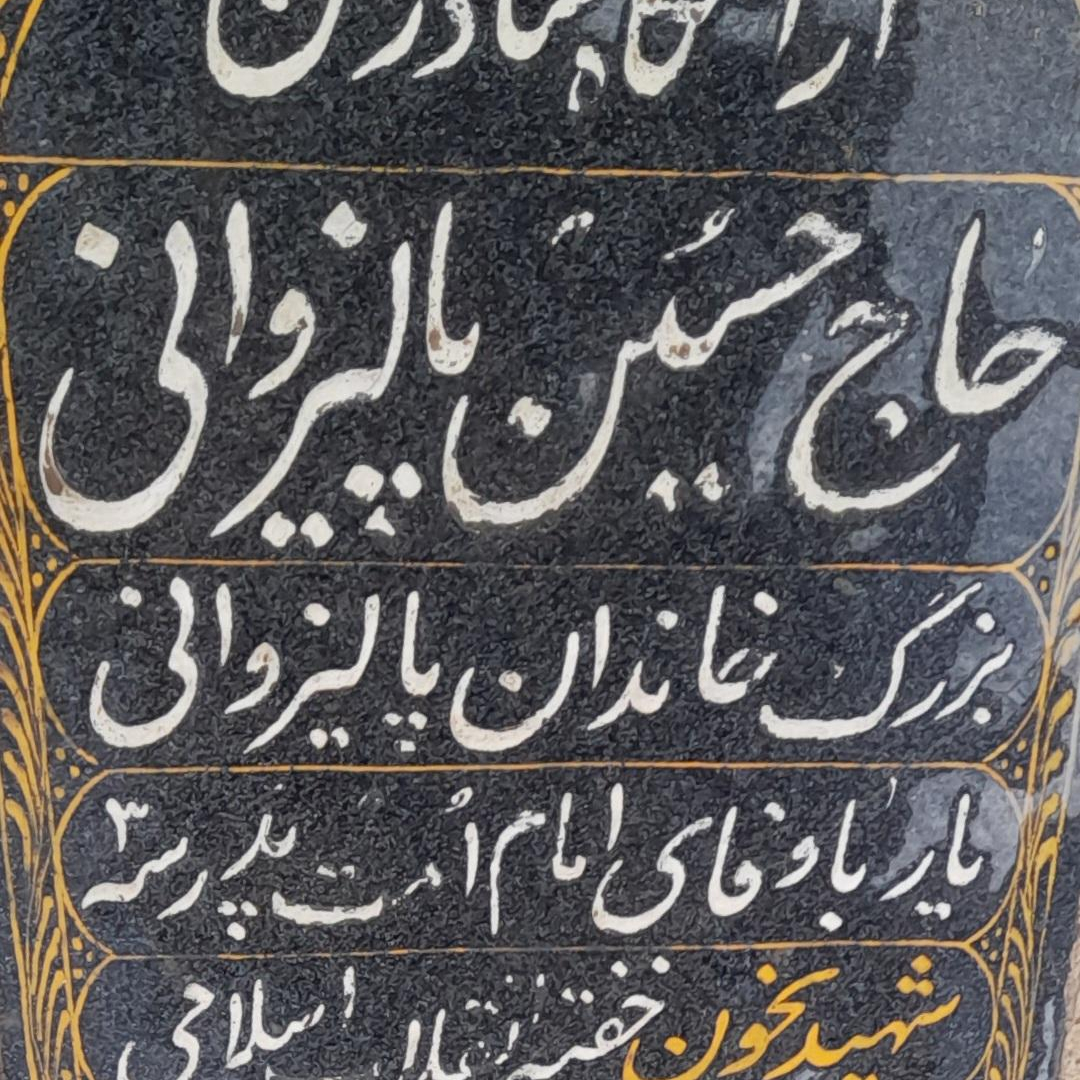 حاج حسین پالیزوانی
بزرگ خاندان پالیزوانی
یار باوفای امام امت پدر سه ۳
شهید بخون خفته انقلاب اسلامی